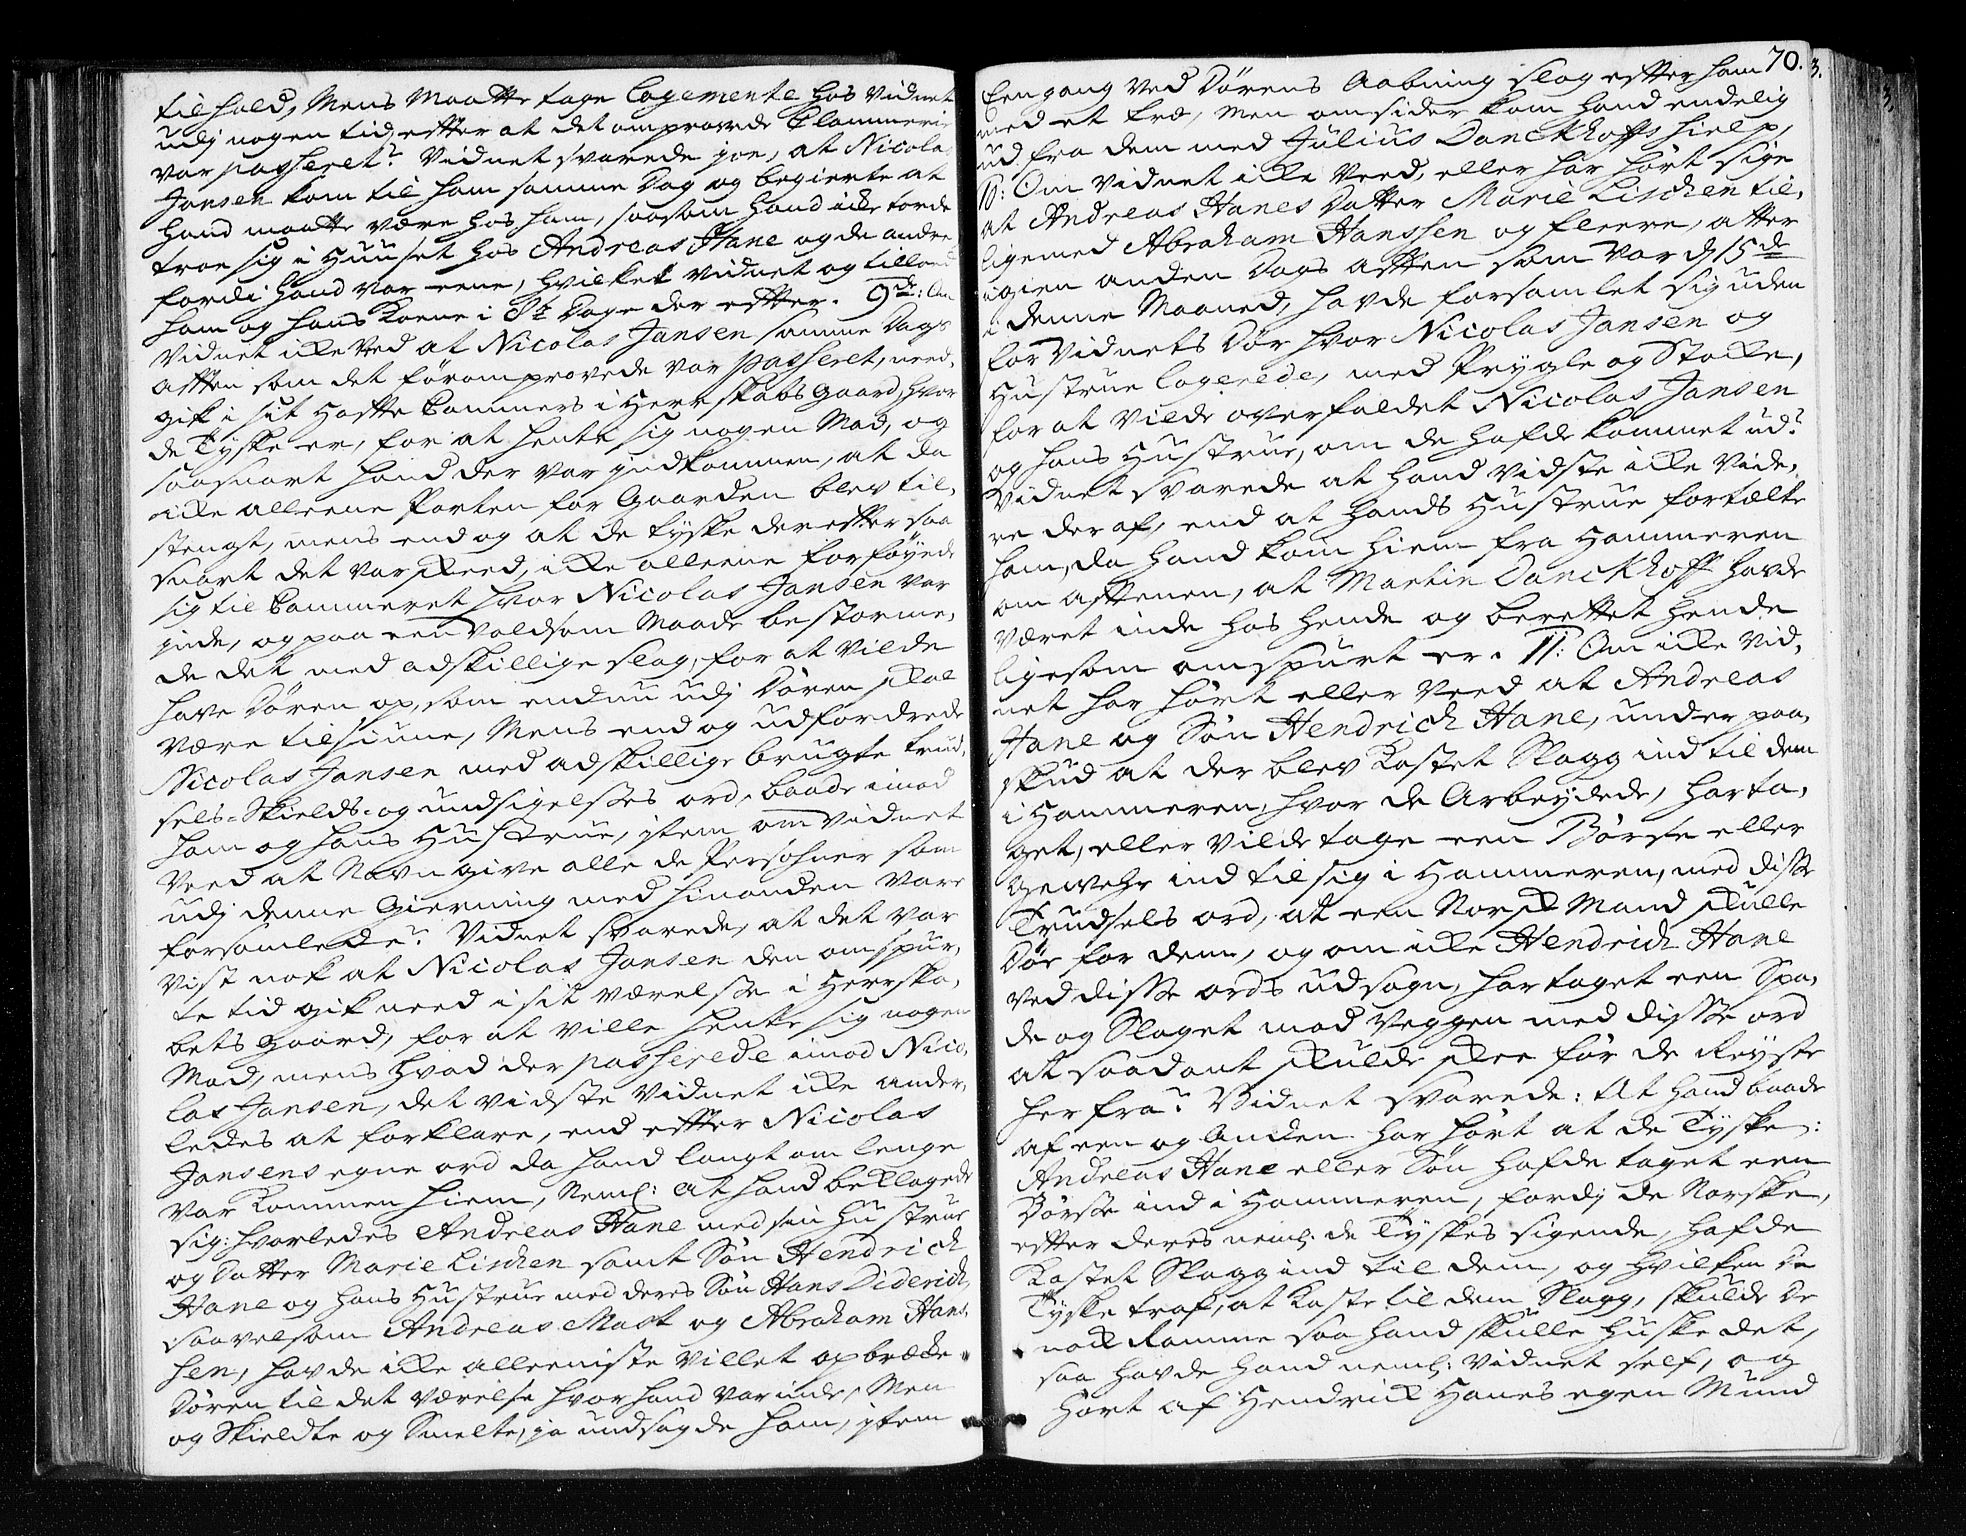 tilhold, Mens Maatte tage Logemente hos Vidnet
udj nogen tid, effter at det omprovede Klammerie
var passeret? Vidnet svarede joe, at Nicolas
Jansen kom til ham samme Dag og begierte at
hand maatte være hos ham, saasom hand icke torde
troe sig i Huuset hos Andreas Hane og de andre
fordi hand var eene, hvilket Vidnet og tillod
ham og hans Kone i 8te Dage der effter. 9de: Om
Vidnet icke Ved at Nicolas Jansen samme Dags
Afften som det føromprovede var passeret, need,
gik i sit Hafte Kammers i Herrskabs Gaard, hvor
de Tyske er, for at hente sig nogen Mad, og
saasnart hand der var indkommen, at da
icke alleene Porten for Gaarden blev til,
stengt, mens end og at de tyske der effter saa
snart det var skeed, icke alleene forføyede
sig til Kammeret hvor Nicolas Jansen var
inde, og paa een Voldsom Maade bestorme,
de det med adskillige slag, for at vilde
have Døren op, som endnu udj Døren skal
være tilsiune, Mens end og udfordrede
Nicolas Jansen med adskillige brugte trud,
sels- Skields- og undsigelses ord, baade imod
ham og hans Hustrue, item om Vidnet
Veed at Navngive alle de Persohner som
udj denne Gierning med hinanden vare
forsamlede? Vidnet svarede, at det var
Vist nok at Nicolas Jansen den omspur,
te tid gik need i sit værelse i Herrska,
bets Gaard, for at ville hente sig nogen
Mad, mens hvad der passerede imod Nico,
las Jansen, det vidste Vidnet icke ander,
ledes at forklare, end effter Nicolas
Jansens egne ord da hand langt om lenge
var kommen hiem, Neml: at hand beklagede
sig: hvorledes Andreas Hane med sin Hustrue
og Datter Marie Lischen samt Søn Hendrich
Hane og hans Hustrue med deres Søn Hans Diderich,
saavelsom Andreas Mast og Abraham Hans,
sen, havde icke alleeniste villet opbræde
Døren til det værelse hvor hand var inde, Men
og Skieldte og Smelte, ja undsagde ham, item
70.
Eengang ved Dørens Aabning slog effter ham
med et træ, Men omsider kom hand endelig
ud fra dem med Julius Danckhoffs hielp,
10: Om Vidnet icke Veed, eller har hørt sige
at Andreas Hanes Datter Marie Lischen til,
ligemed Abraham Hanssen og fleere, atter
igien anden Dags Afften som var d 15de
i denne Maaned, havde forsamlet sig uden
for Vidnets Dør hvor Nicolas Jansen og
Hustrue Logerede, med Prygle og Stocke,
for at vilde overfaldet Nicolas Jansen
og hans Hustrue, om de hafde kommet ud?
Vidnet svarede at hand vidste icke vide,
re der af, end at hands Hustrue fortælte
ham, da hand kom hiem fra Hammeren
om Afftenen, at Martin Danckhoff havde
været inde hos hende og berettet hende
ligesom omspurt er. 11: Om icke Vid,
net har hørt eller Veed at Andreas
Hane og Søn Hendrich Hane, under paa,
skud at der blev Kastet Slagg ind til dem
i Hammeren, hvor de Arbeydede, har ta,
get, eller vilde tage een Børse eller
Gewehr ind til sig i Hammeren, med disse
Trudsels ord, at een Norsk Mand skulle
Døe for dem, og om icke Hendrich Hane
ved disse ords udsagn, har taget een Spa,
de og Slaget mod Veggen med disse ord
at saadant skulde skee før de Reyste
her fra? Vidnet svarede: At hand baade
af een og Anden har hørt at de Tyske:
Andreas Hane eller Søn hafde taget een
Børse ind i Hammeren, fordj de Norske,
effter deres neml: de Tyskes sigende, hafde
Kastet Slagg ind til dem, og hvilken de
Tyske traf, at kaste til dem Slagg, skulde de
nock Ramme saa hand skulle huske det,
saa havde hand neml: Vidnet self, og
Hørt af Hendrick Hanes egen Mund